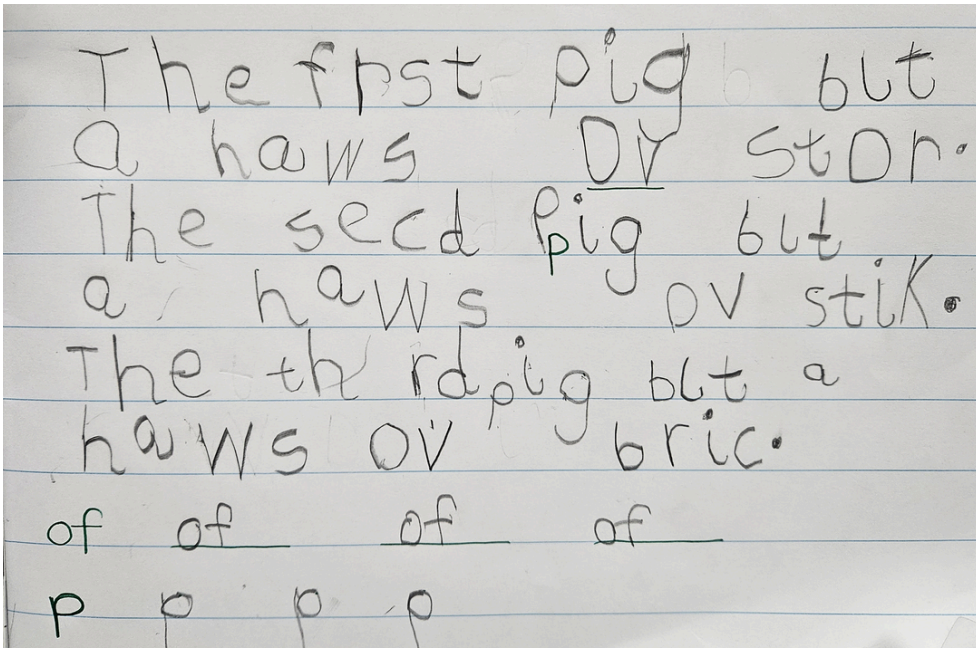 The frst pig blt
a haws ov stor.
The secd pig blt
a haws ov stik.
The thrd pig blt a
haws ov bric.
of of of of
p p p p